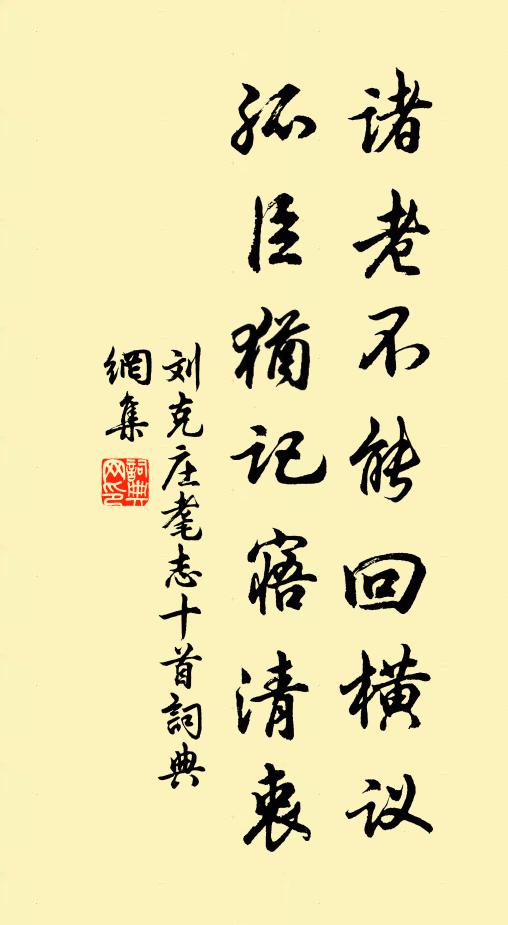 诸老不能回横议
孤臣犹记寤清衷
刘克庄耄志十首詞典
網集
詞典網印